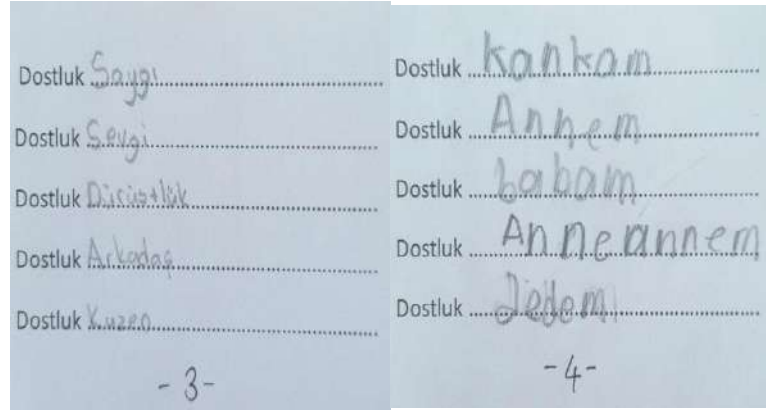 Dostluk Saygı
Dostluk Sevgi
Dostluk Dürüstlük
Dostluk Arkadaş
Dostluk Kuzen
- 3 -
Dostluk Kankam
Dostluk Annem
Dostluk babam
Dostluk Anneannem
Dostluk Dedem
- 4 -